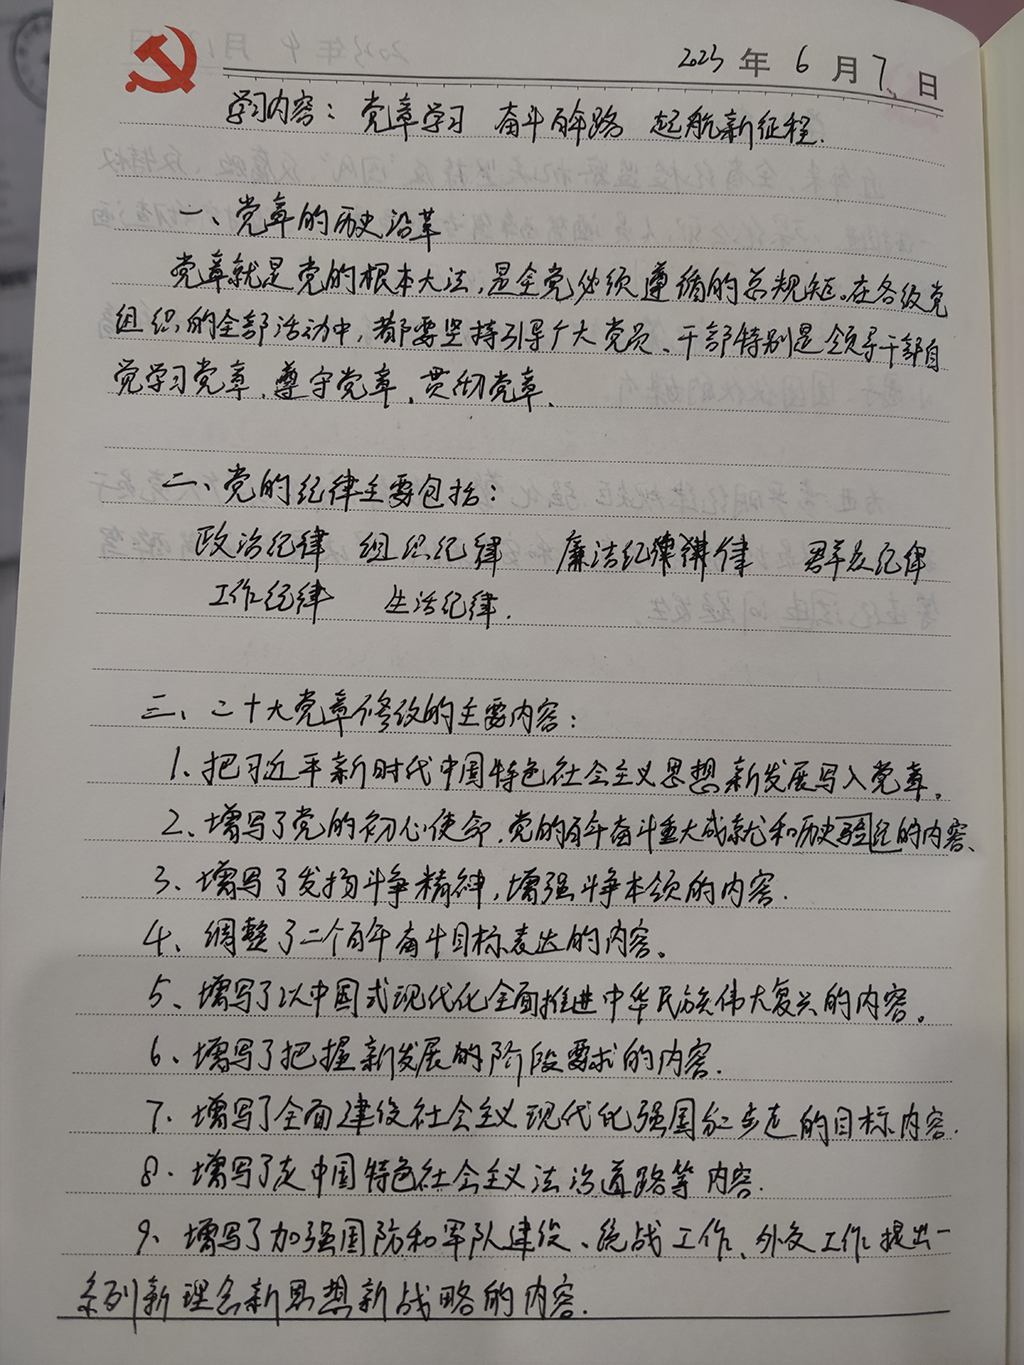 2023年6月7日
学习内容：党章学习 奋斗百年路 起航新征程.
一、党章的历史沿革
党章就是党的根本大法,是全党必须遵循的总规矩。在各级党
组织的全部活动中,都要坚持引导广大党员、干部特别是领导干部自
觉学习党章、遵守党章、贯彻党章、
二、党的纪律主要包括：
政治纪律 组织纪律 廉洁纪律 群众纪律
工作纪律 生活纪律.
三、二十大党章修改的主要内容：
1、把习近平新时代中国特色社会主义思想新发展写入党章。
2、增写了党的初心使命、党的百年奋斗重大成就和历史验经的内容、
3、增写了发扬斗争精神,增强斗争本领的内容.
4、调整了二个百年奋斗目标表达的内容。
5、增写了以中国式现代化全面推进中华民族伟大复兴的内容。
6、增写了把握新发展的阶段要求的内容.
7、增写了全面建设社会主义现代化强国分二步走的目标内容.
8、增写了走中国特色社会主义法治道路等内容.
9、增写了加强国防和军队建设、统战工作、外交工作提出一
系列新理念新思想新战略的内容.